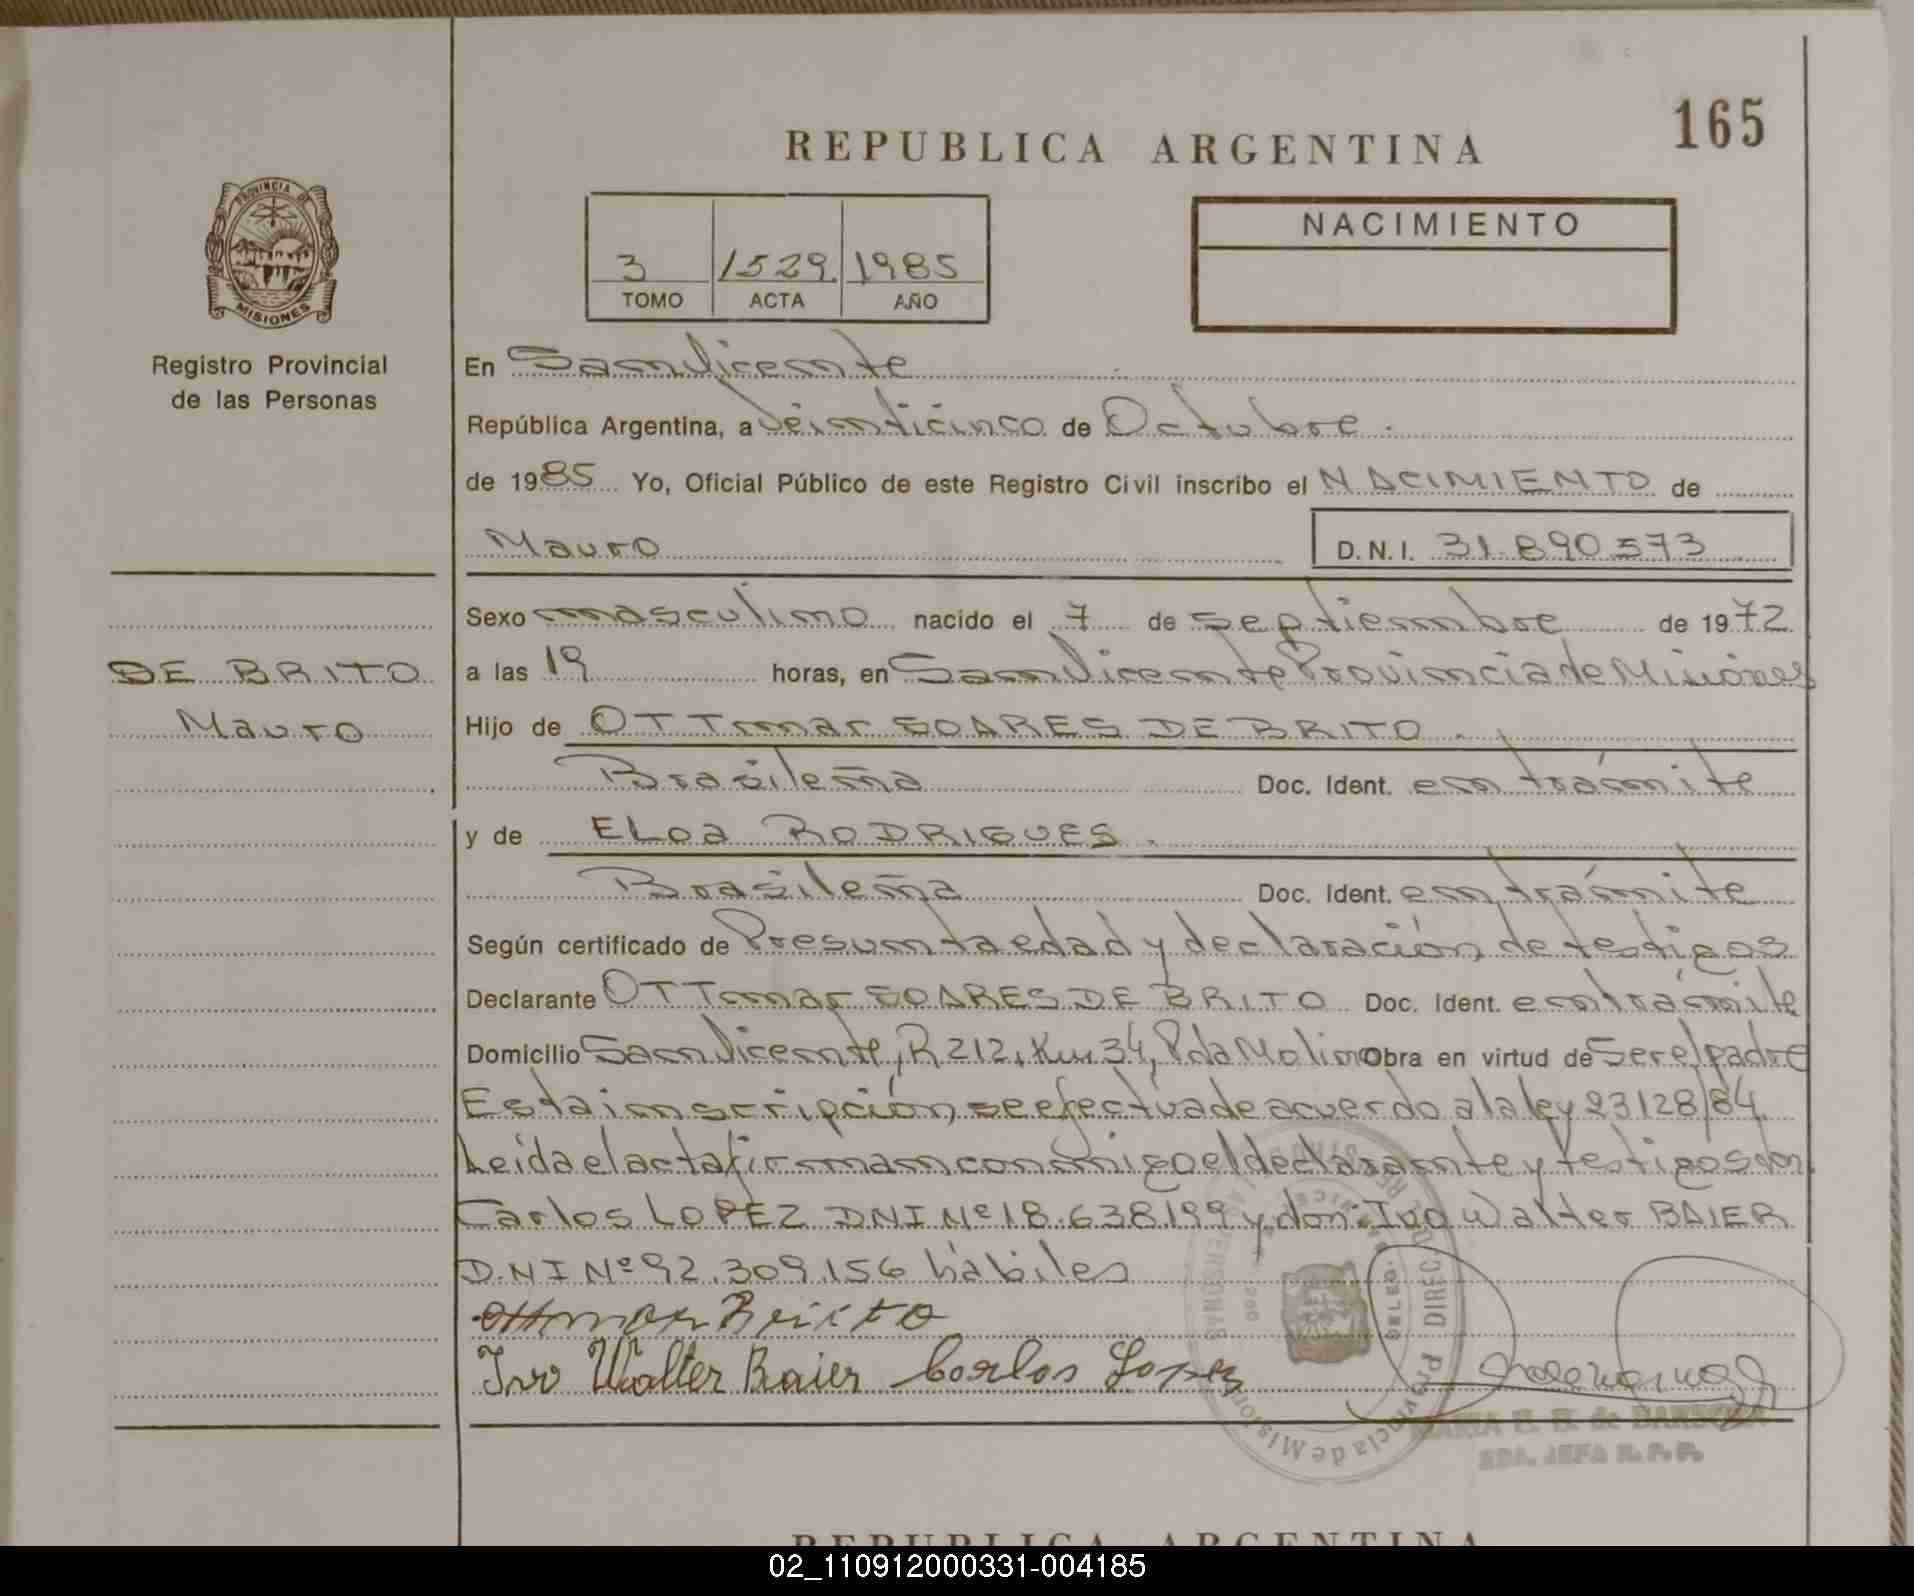 165
REPUBLICA ARGENTINA
PROVINCIA DE
MISIONES
Registro Provincial
de las Personas
3 1529 1985
TOMO ACTA AÑO
NACIMIENTO
En San Vicente
República Argentina, a Veinticinco de Octubre.
de 1985 Yo, Oficial Público de este Registro Civil inscribo el NACIMIENTO de
Mauro D.N.I. 31.890.573
Sexo masculino nacido el 7 de septiembre de 1972
DE BRITO
Mauro
a las 19 horas, en San Vicente Provincia de Misiones
Hijo de OTTmar SOARES DE BRITO.
Brasileña Doc. Ident. en trámite
y de ELOa RODRIGUES.
Brasileña Doc. Ident. en trámite
Según certificado de Presunta edad y declaración de testigos
Declarante OTTmar SOARES DE BRITO Doc. Ident. en trámite
Domicilio San Vicente, R 212, Km 34, Pda Molino Obra en virtud de Ser el padre
Esta inscripción, se efectúa de acuerdo a la ley 23128/84.
Leída el acta firman conmigo el declarante y testigos don
Carlos LOPEZ DNI Nº 18.638199 y don: Ivo Walter BAIER
D.N.I Nº 92.309.156 hábiles
Ottmar Britto
Ivo Walter Baier Carlos Lopez
Provincia de Misiones
2DA. JEFA R.P.P.
REPUBLICA ARGENTINA
02_110912000331-004185